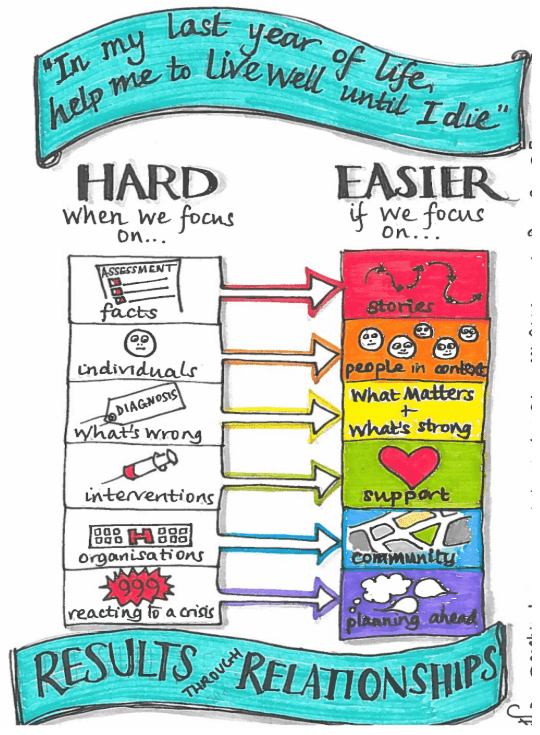 "In my last year of life,
help me to live well until I die"
HARD
when we focus
on...
EASIER
if we focus
on...
ASSESSMENT
facts
stories
individuals
people in context
DIAGNOSIS
What's wrong
What Matters
+
What's strong
interventions
support
H
organisations
community
999
reacting to a crisis
planning ahead
RESULTS THROUGH RELATIONSHIPS